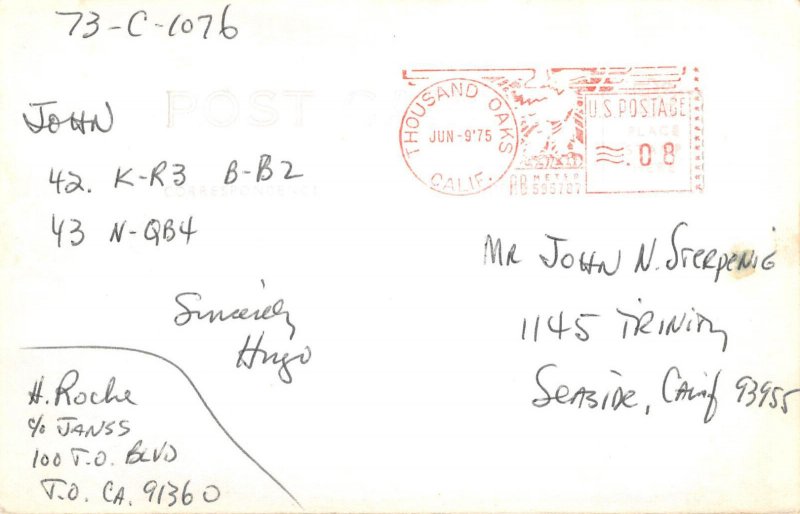 73-C-1076
POST
THOUSAND OAKS
JUN-9'75
CALIF.
U.S. POSTAGE
PLACE
.08
PB METER
CORRESPONDENCE
JOHN
42. K-R3 B-B2
43 N-QB4
Sincerely
Hugo
MR JOHN N. STERPENIG
1145 TRINITY
SEASIDE, Calif 93955
H. Roche
c/o JANSS
100 T.O. BLVD
T.O. CA. 91360